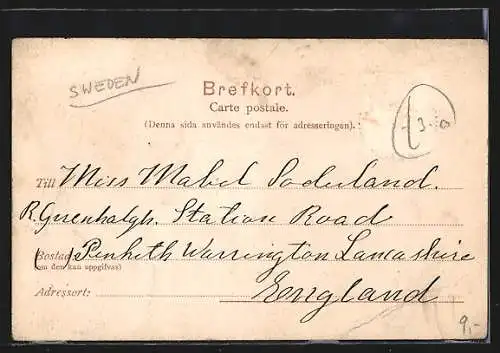 SWEDEN
Brefkort.
Carte postale.
(Denna sida användes endast för adresseringen).
Till Miss Mabel Soderland.
R. Greenhalgh. Station Road
Bostad Penketh Warrington Lancashire
(om den kan uppgifvas)
Adressort: England
9,-